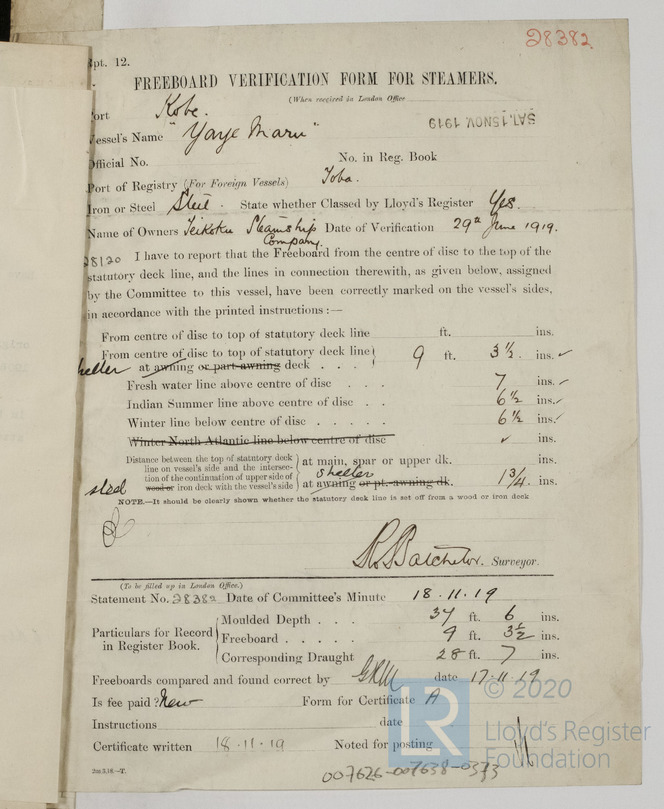 28382
Rpt. 12.
FREEBOARD VERIFICATION FORM FOR STEAMERS.
(When received in London Office
SAT. 15 NOV. 1919
Port Kobe.
Vessel's Name "Yaye Maru"
Official No. No. in Reg. Book
Port of Registry (For Foreign Vessels) Toba.
Iron or Steel Steel. State whether Classed by Lloyd's Register Yes.
Name of Owners Teikoku Steamship Company. Date of Verification 29th June 1919.
28120 I have to report that the Freeboard from the centre of disc to the top of the
statutory deck line, and the lines in connection therewith, as given below, assigned
by the Committee to this vessel, have been correctly marked on the vessel's sides,
in accordance with the printed instructions:—
From centre of disc to top of statutory deck line ft. ins.
From centre of disc to top of statutory deck line
shelter at awning or part-awning deck . . . 9 ft. 3 1/2 ins. ✓
Fresh water line above centre of disc . . . 7 ins. ✓
Indian Summer line above centre of disc . . 6 1/2 ins. ✓
Winter line below centre of disc . . . . . 6 1/2 ins. ✓
Winter North Atlantic line below centre of disc ✓ ins.
Distance between the top of statutory deck
line on vessel's side and the intersec-
tion of the continuation of upper side of
steel wood or iron deck with the vessel's side
at main, spar or upper dk. ins.
shelter
at awning or pt.-awning dk. 1 3/4 ins.
NOTE.—It should be clearly shown whether the statutory deck line is set off from a wood or iron deck
R. S. Batchelor. Surveyor.
(To be filled up in London Office.)
Statement No. 28382 Date of Committee's Minute 18.11.19
Particulars for Record in Register Book.
Moulded Depth . . . 37 ft. 6 ins.
Freeboard . . . . . 9 ft. 3 1/2 ins.
Corresponding Draught 28 ft. 7 ins.
Freeboards compared and found correct by date 17.11.19
Is fee paid? New Form for Certificate A
Instructions date
Certificate written 18.11.19 Noted for posting
2m.3.18.—T.
007626-007638-0373
LR
© 2020
Lloyd's Register
Foundation